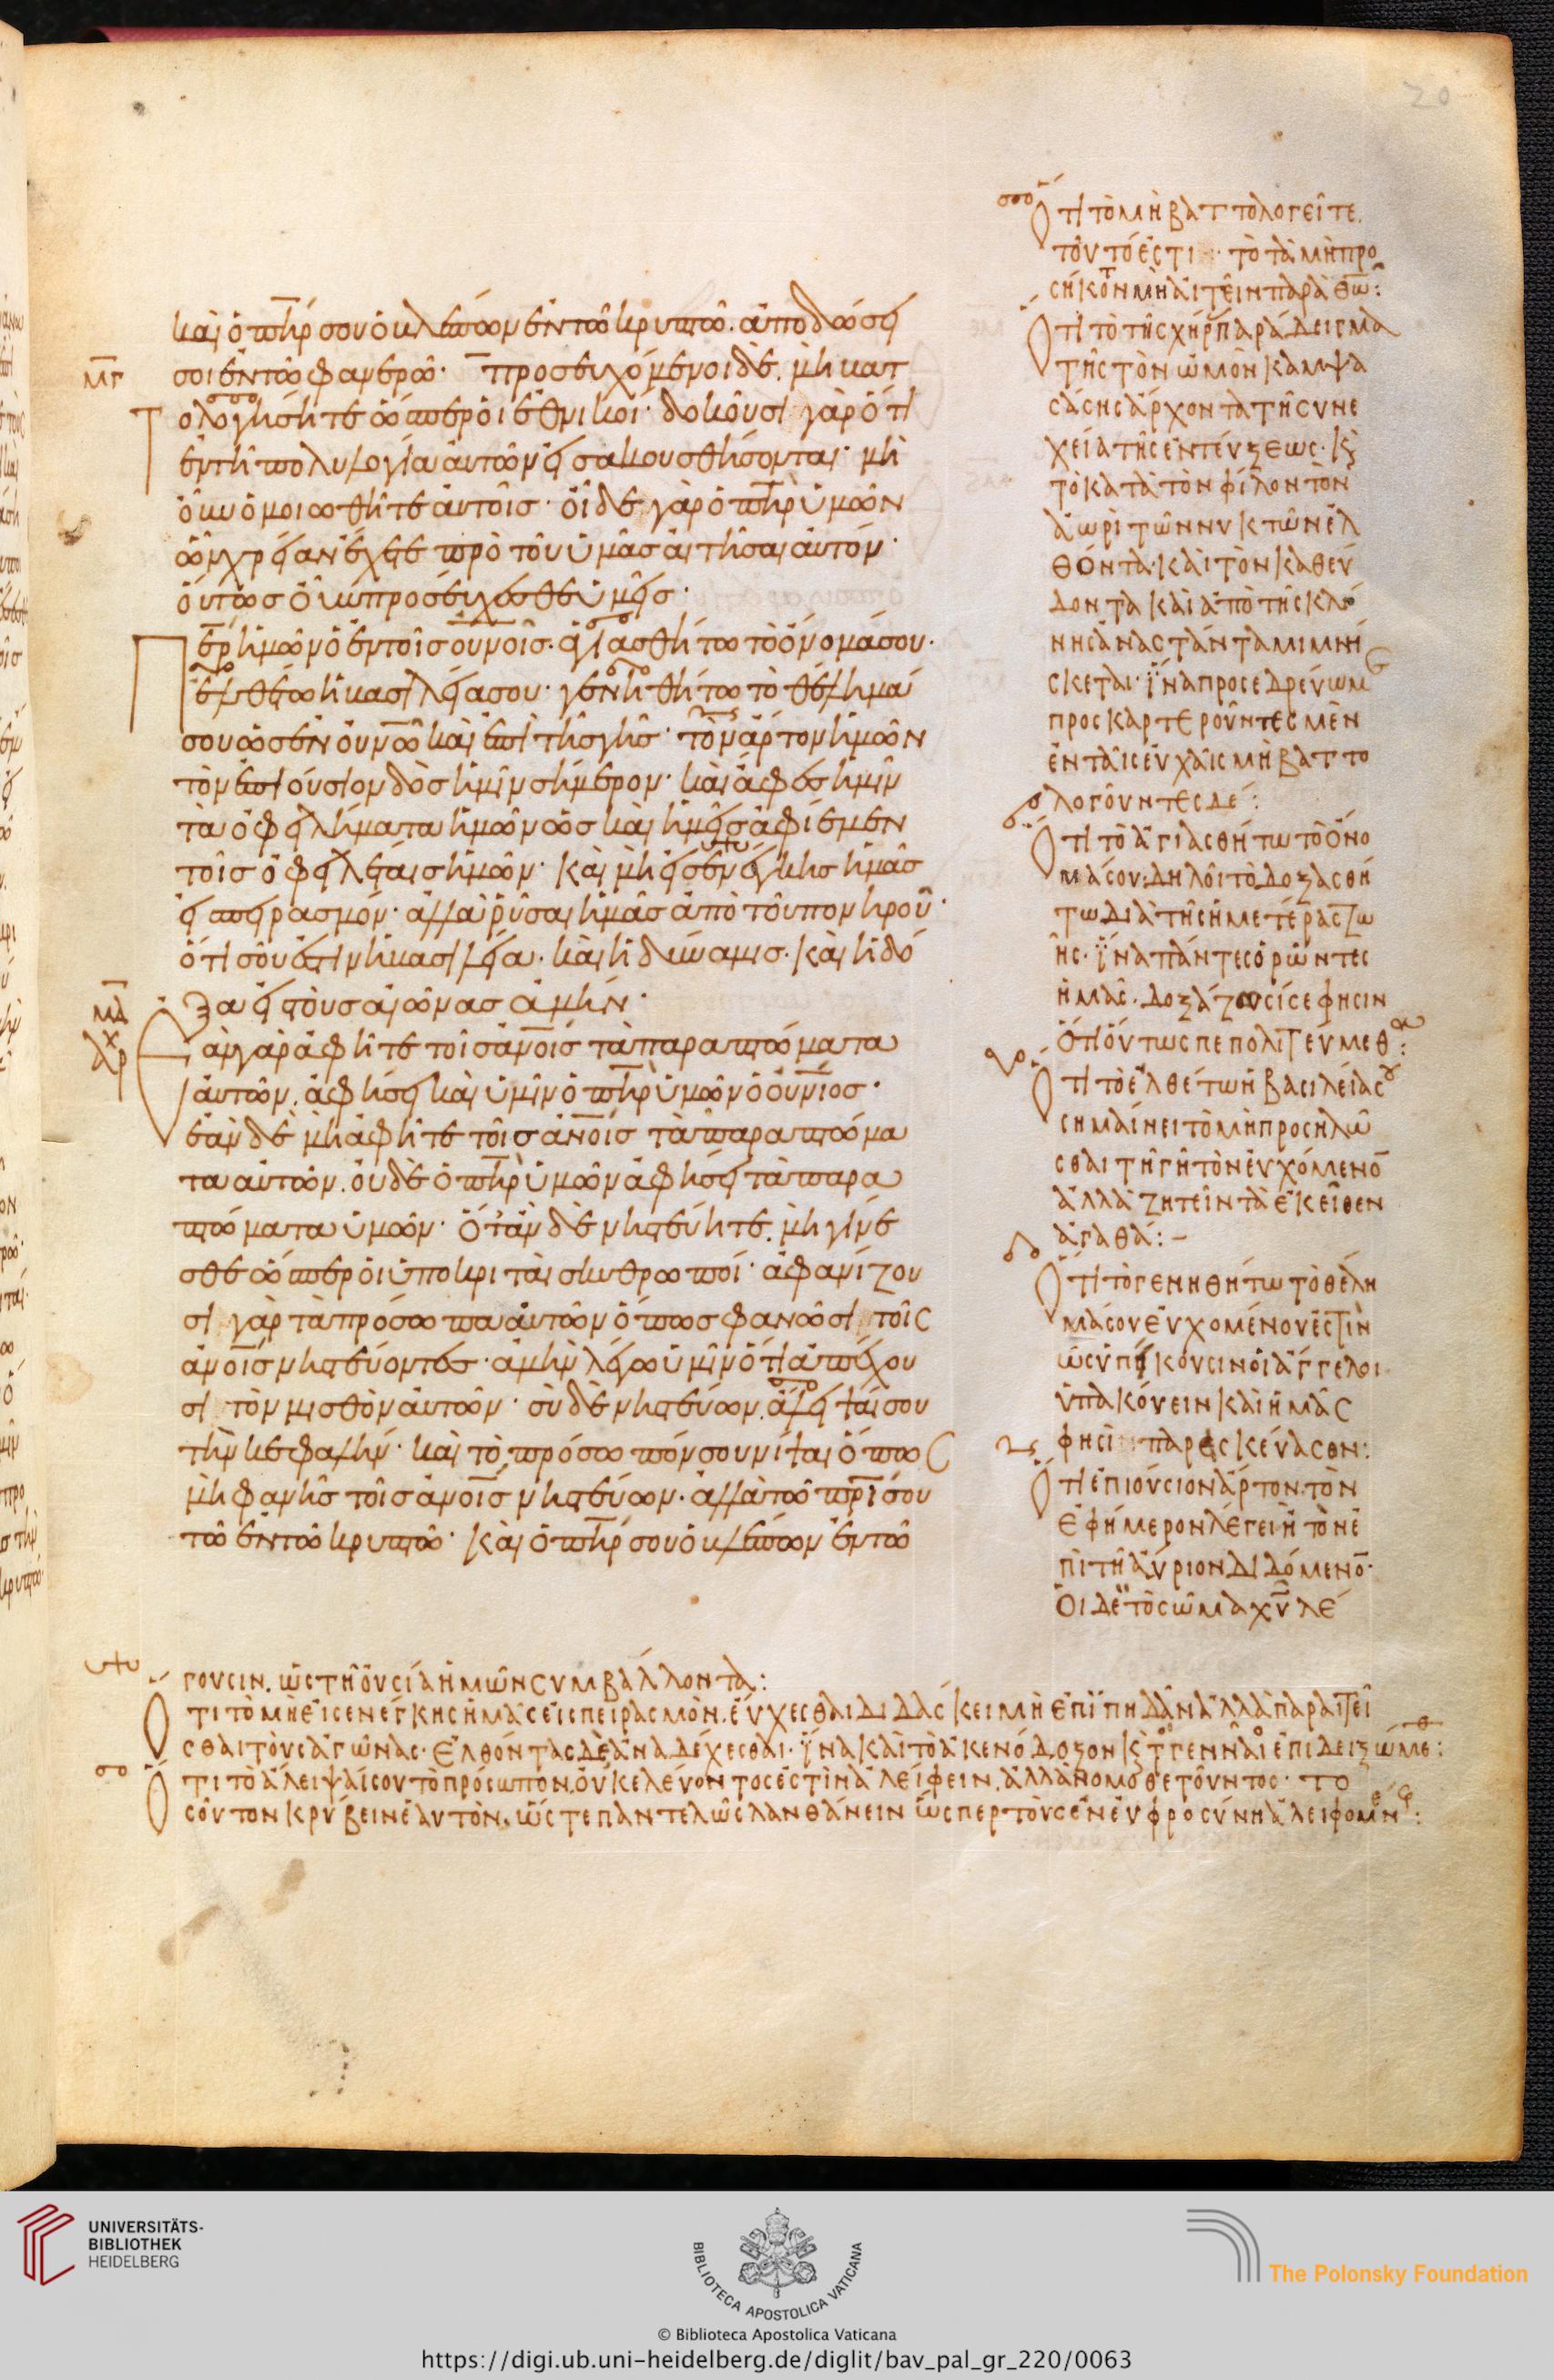 20
καὶ ὁ πη̅ρ σου ὁ κλέπων ἐν τῶ κρυπτῶ. ἀποδώσει
μγ
σοι ἐν τῶ φανερῶ· προσευχόμενοι δὲ. μὴ κατ
τολογήσητε ὥσπερ ὁι ἐθνικοί· δοκοῦσι γὰρ ὅτι
ἐν τῆ πολυλογία ἀυτῶν εἰσακουσθήσονται· μὴ
ὀῦν ὁμοιωθῆτε ἀυτοῖς· ὀῖδε γὰρ ὁ πη̅ρ ὑμῶν
ὧν χρείαν ἔχετε πρὸ τοῦ ὑμᾶς ἀιτῆσαι ἀυτόν·
ὅυτως ὀῦν προσεύχεσθε ὑμεῖς·
Πε̅ρ ἡμῶν ὁ ἐν τοῖς ου̅νοῖς. ἁγιασθήτω τὸ ὄνομά σου·
ἐλθέτω ἡ βασιλεία σου· γενηθήτω τὸ θέλημά
σου ὡς ἐν ὀυ̅νῶ καὶ ἐπὶ τῆς γῆς· τὸν ἄρτον ἡμῶν
τὸν ἐπιούσιον δὸς ἡμῖν σήμερον· καὶ ἄφες ἡμῖν
τὰ ὀφειλήματα ἡμῶν ὡς καὶ ἡμεῖς ἀφίεμεν
τοῖς ὀφειλέταις ἡμῶν· καὶ μὴ εἰσενέγκης ἡμᾶς
εἰς πειρασμόν· ἀλλὰ ῥῦσαι ἡμᾶς ἀπὸ τοῦ πονηροῦ·
ὅτι σοῦ ἐστὶν ἡ βασιλεία. καὶ ἡ δύναμις. καὶ ἡ δό
ξα εἰς τοὺς αἰῶνας ἀμήν·
μδ
Ἐὰν γὰρ ἀφῆτε τοῖς ἀν̅οις τὰ παραπτώματα
ἀυτῶν. ἀφήσει καὶ ὑμῖν ὁ πη̅ρ ὑμῶν ὁ ὀυ̅νιος·
ἐὰν δὲ μὴ ἀφῆτε τοῖς ἀν̅οις τὰ παραπτώμα
τα ἀυτῶν. ὀυδὲ ὁ πη̅ρ ὑμῶν ἀφήσει τὰ παρα
πτώματα ὑμῶν· ὅταν δὲ νηστεύητε. μὴ γίνε
σθε ὥσπερ ὁι ὑποκριταὶ σκυθρωποί· ἀφανίζου
σι γὰρ τὰ πρόσωπα ἀυτῶν ὅπως φανῶσι τοῖς
ἀν̅οις νηστεύοντες· ἀμὴν λέγω ὑμῖν ὅτι ἀπέχου
σι τὸν μισθὸν ἀυτῶν· σὺ δὲ νηστεύων. ἄλειψαί σου
τὴν κεφαλήν· καὶ τὸ πρόσωπόν σου νίψαι ὅπως
μὴ φανῆς τοῖς ἀν̅οις νηστεύων. ἀλλὰ τῶ πρ̅ί σου
τῶ ἐν τῶ κρυπτῶ· καὶ ὁ πη̅ρ σου ὁ βλέπων ἐν τῶ
Ὅτι τὸ μὴ βαττολογεῖτε.
τοῦτό ἐστι τὸ τὰ μὴ προ
σήκοντα μὴ ἀιτεῖν παρὰ θω̅:
Ὅτι τὸ τῆς χήρ παράδειγμα
τῆς τὸν ὠμὸν κάμψα
σάσης ἄρχοντα τῆ συνε
χεία τῆς ἐντεύξεως· κ
τὸ κατὰ τὸν φίλον τὸν
ἀωρὶ τῶν νυκτῶν ἐλ
θόντα· καὶ τὸν καθεύ
δοντα καὶ ἀπὸ τῆς κλί
νης ἀναστάντα μιμνή
σκεται· ἵνα προσεδρεύωμ
προσκαρτεροῦντες μὲν
ἐν ταῖς ἐυχαῖς μὴ βαττο
λογοῦντες δέ:
Ὅτι τὸ ἁγιασθήτω τὸ ὄνο
μά σου: δηλοῖ τὸ δοξασθή
τω διὰ τῆς ἡμετέρας ζω
ῆς. ἵνα πάντες ὁρῶντες
ἡμᾶς. δοξάζουσί σε φησιν
ὅτι ὅυτως πεπολιτεύμεθα:
Ὅτι τὸ ἐλθέτω ἡ βασιλεία σου
σημαίνει τὸ μὴ προσηλῶ
σθαι τῆ γῆ τὸν ἐυχόμενο̅
ἀλλὰ ζητεῖν τὰ ἐκεῖθεν
ἀγαθά:–
Ὅτι τὸ γενηθήτω τὸ θέλη
μά σου ἐυχομένου ἐστὶν
ὡς ὑπακούουσιν ὁι ἄγγελοι
ὑπακούειν καὶ ἡμᾶς
φησὶ παρασκεύασον:
Ὅτι ἐπιούσιον ἄρτον. τὸν
ἐφήμερον λέγει ἢ τὸν ἐ
πὶ τῆ ἄυριον διδόμενο̅·
Ὁι δὲ τὸ σῶμα χυ̅ λέ
γουσιν. ὡς τῆ ὀυσία ἡμῶν συμβάλλοντα:
Ὅτι τὸ μὴ εἰσενέγκης ἡμᾶς εἰς πειρασμὸν. ἔυχεσθαι διδάσκει μὴ ἐπιπηδᾶν ἀλλὰ παραιτεῖ
σθαι τοὺς ἀγῶνας· ἐλθόντας δὲ ἀναδέχεσθαι· ἵνα καὶ τὸ ἀκενόδοξον κ τὸ γενναῖον ἐπιδειξώμεθ:
Ὅτι τὸ ἄλειψαί σου τὸ πρόσωπον. ὀυ κελεύοντος ἐστὶν ἀλείφειν. ἀλλὰ νομοθετοῦντος· το
σοῦτον κρύβειν ἑαυτὸν. ὥστε παντελῶς λανθάνειν ὥσπερ τοὺς ἐν ἐυφροσύνη ἀλειφομέν:
UNIVERSITÄTS-
BIBLIOTHEK
HEIDELBERG
BIBLIOTECA APOSTOLICA VATICANA
The Polonsky Foundation
© Biblioteca Apostolica Vaticana
https://digi.ub.uni-heidelberg.de/diglit/bav_pal_gr_220/0063